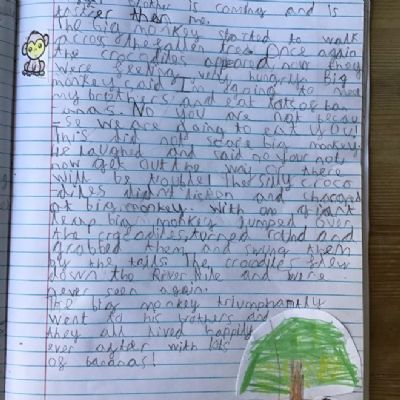 brother is coming and is
then me.
The big monkey started to walk
across the fallen tree. Once again
the crocodiles appeared now they
were feeling very hungry. Big
monkey said I'm going to meet
my brothers and eat lots of ban
-annas. No you are not becau
-se we are going to eat you!
This did not scare big monkey
he laughed and said no your not
now get out the way or there
will be trouble! The silly croco
-diles didn't liston and charged
at big monkey. With one giant
leap big monkey jumped over
the crocodiles, turned round and
grabbed them and swung them
by the tails. The crocodiles flew
down the River Nile and were
never seen again.
The big monkey triumphantly
went to his brothers and
they all lived happily
ever after with lots
of bananas!